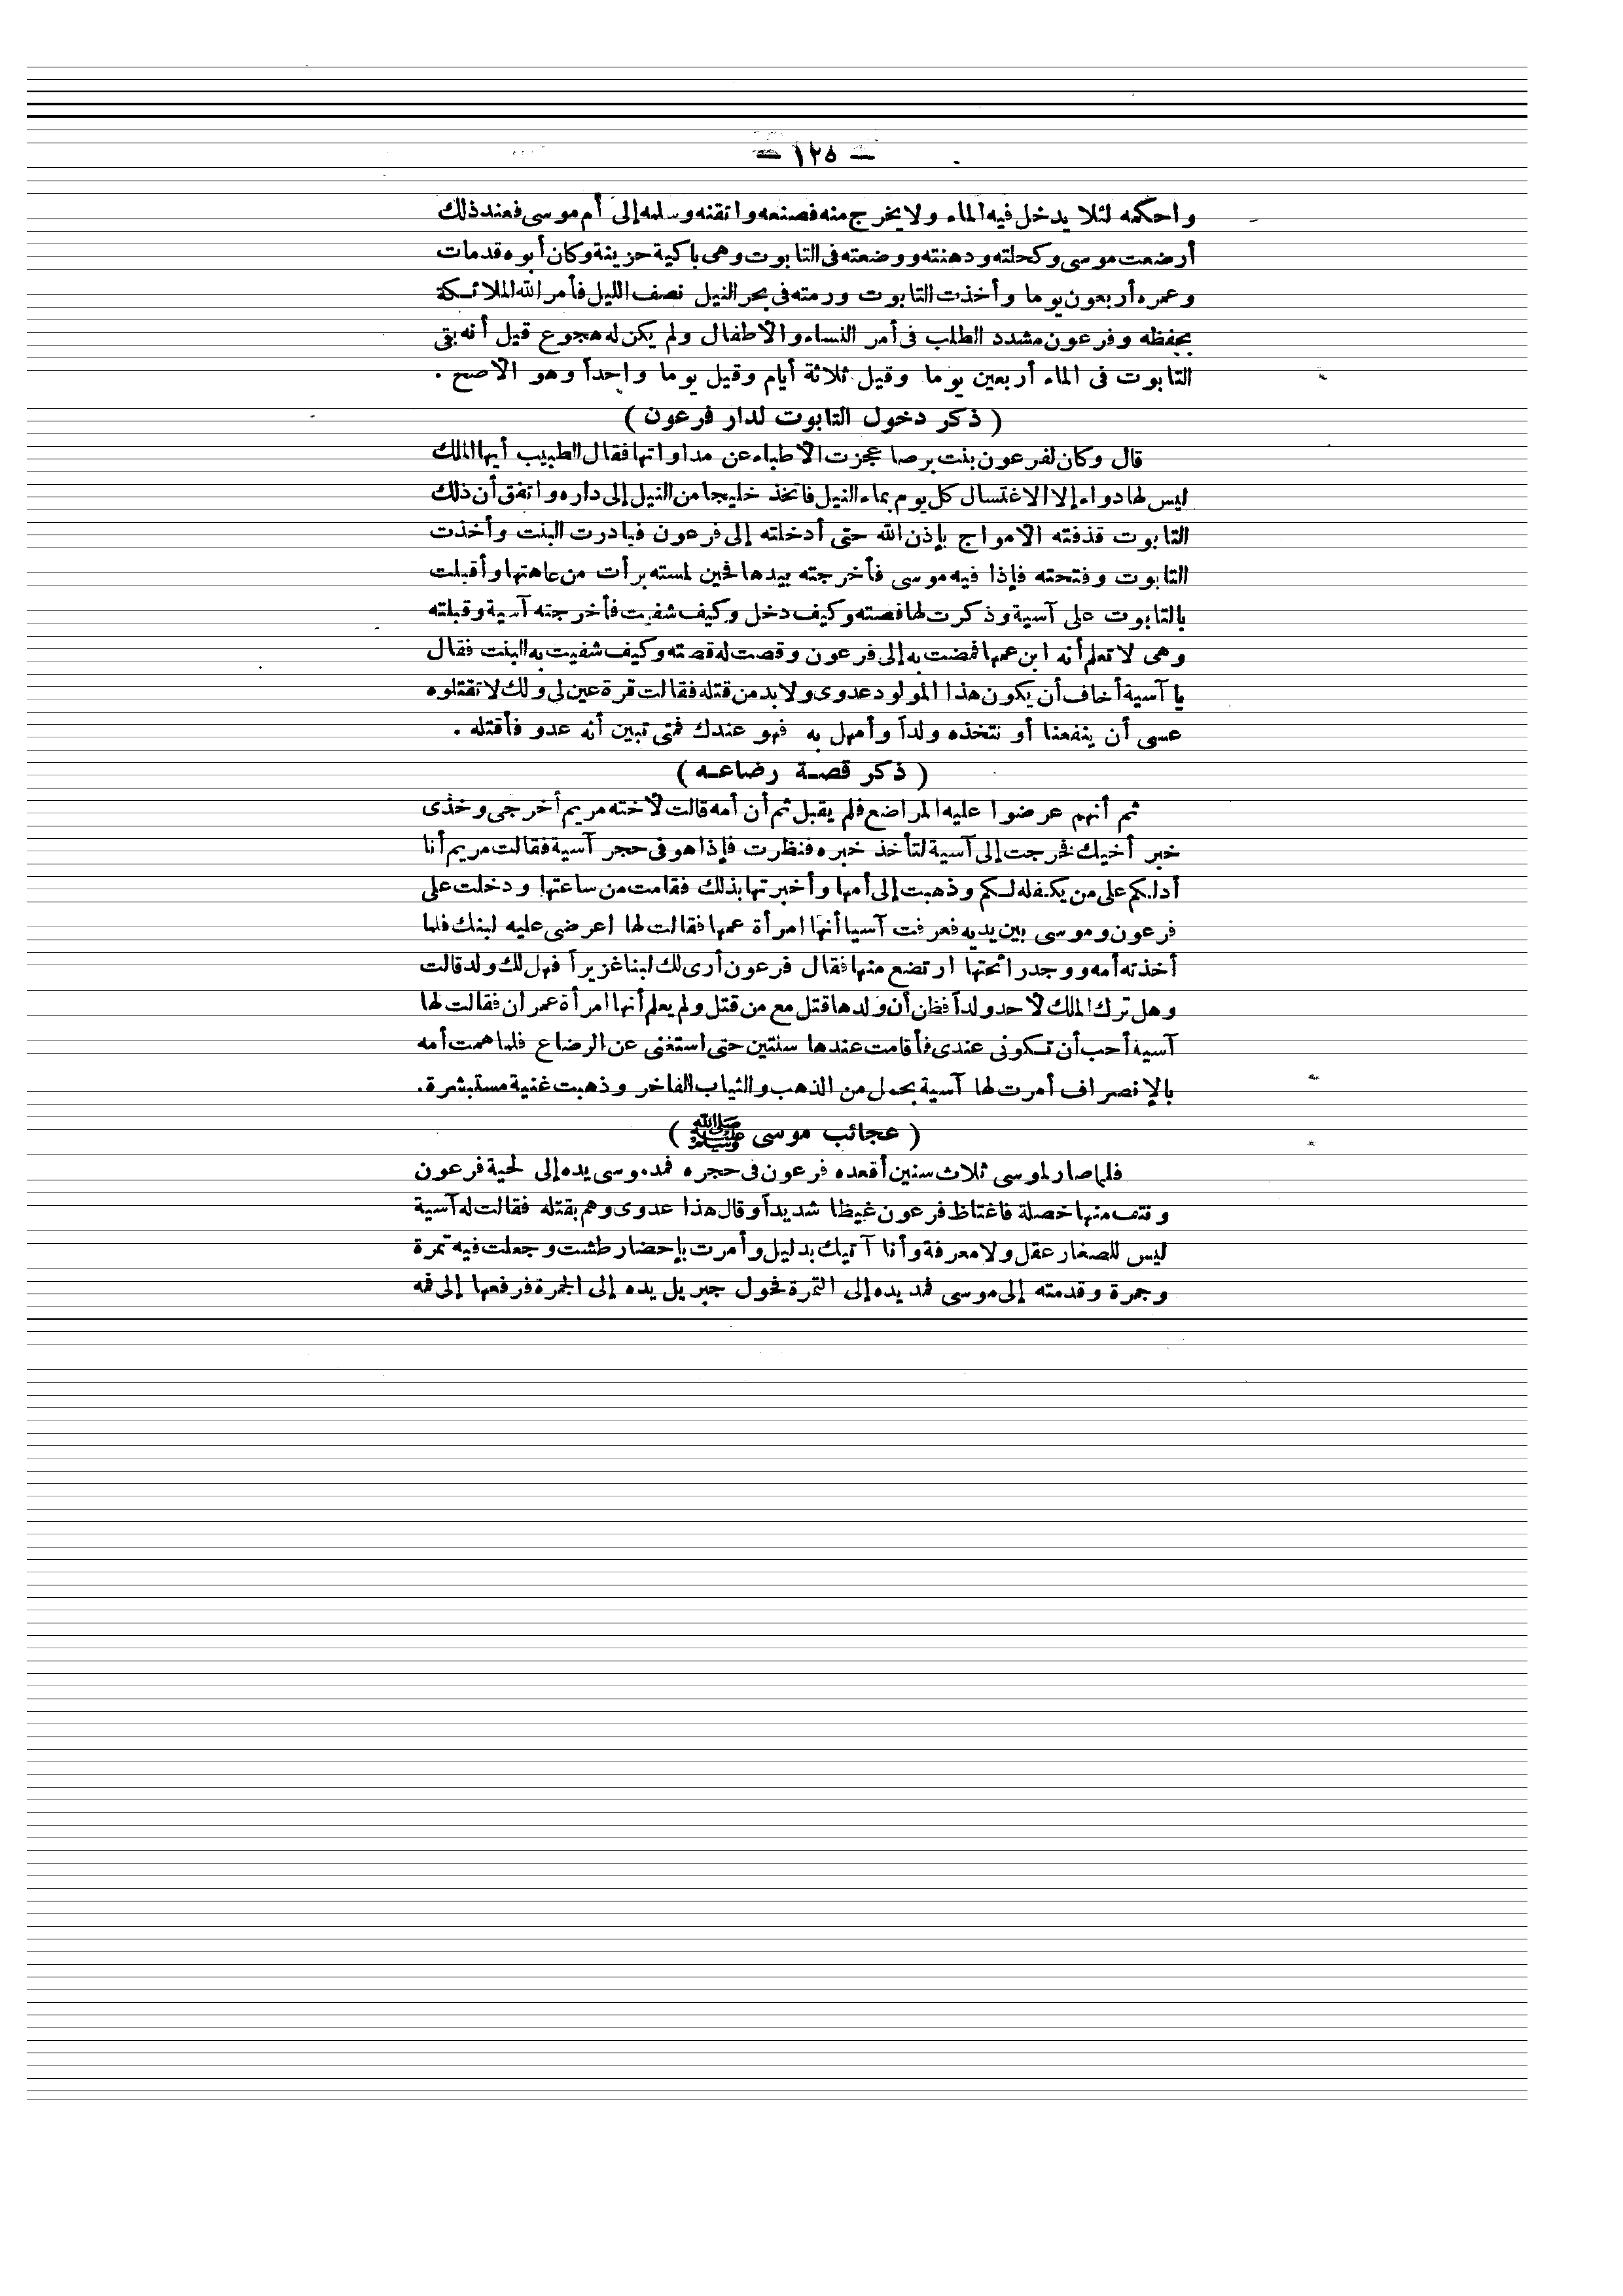 — ١٢٥ —
واحكمه لئلا يدخل فيه الماء ولا يخرج منه فصنعه واتقنه وسلمه إلى أم موسى فعند ذلك
أرضعت موسى وكحلته ودهنته ووضعته فى التابوت وهى باكية حزينة وكان أبوه قد مات
وعمره أربعون يوما وأخذت التابوت ورمته فى بحر النيل نصف الليل فأمر الله الملائكة
بحفظه وفرعون مشدد الطلب فى أمر النساء والاطفال ولم يكن له هجوع قيل أنه بقى
التابوت فى الماء أربعين يوما وقيل ثلاثة أيام وقيل يوما واحداً وهو الاصح .
( ذكر دخول التابوت لدار فرعون )
قال وكان لفرعون بنت برصا عجزت الاطباء عن مداواتها فقال الطبيب أيها الملك
ليس لها دواء إلا الاغتسال كل يوم بماء النيل فاتخذ خليجا من النيل إلى داره واتفق أن ذلك
التابوت قذفته الامواج بإذن الله حتى أدخلته إلى فرعون فبادرت البنت وأخذت
التابوت وفتحته فإذا فيه موسى فأخرجته بيدها فحين لمسته برأت من عاهتها وأقبلت
بالتابوت على آسية وذكرت لها قصته وكيف دخل وكيف شفيت فأخرجته آسية وقبلته
وهى لا تعلم أنه ابن عمها فمضت به إلى فرعون وقصت له قصته وكيف شفيت به البنت فقال
يا آسية أخاف أن يكون هذا المولود عدوى ولابد من قتله فقالت قرة عين لى ولك لا تقتلوه
عسى أن ينفعنا أو نتخذه ولداً وأمهل به فهو عندك فمتى تبين أنه عدو فأقتله .
( ذكر قصة رضاعه )
ثم أنهم عرضوا عليه المراضع فلم يقبل ثم أن أمه قالت لاخته مريم أخرجى وخذى
خبر أخيك فخرجت إلى آسية لتأخذ خبره فنظرت فإذا هو فى حجر آسية فقالت مريم أنا
أدلكم على من يكفله لكم وذهبت إلى أمها وأخبرتها بذلك فقامت من ساعتها ودخلت على
فرعون وموسى بين يديه فعرفت آسيا أنها امرأة عمها فقالت لها اعرضى عليه لبنك فلما
أخذته أمه ووجد رائحتها ارتضع منها فقال فرعون أرى لك لبنا غزيراً فهل لك ولد قالت
وهل ترك الملك لاحد ولداً فظن أن ولدها قتل مع من قتل ولم يعلم أنها امرأة عمران فقالت لها
آسية أحب أن تكونى عندى فأقامت عندها سنتين حتى استغنى عن الرضاع فلما همت أمه
بالإنصراف أمرت لها آسية بحمل من الذهب والثياب الفاخر وذهبت غنية مستبشرة.
( عجائب موسى ﷺ )
فلما صار لموسى ثلاث سنين أقعده فرعون فى حجره فمد موسى يده إلى لحية فرعون
ونتف منها خصلة فاغتاظ فرعون غيظا شديداً وقال هذا عدوى وهم بقتله فقالت له آسية
ليس للصغار عقل ولا معرفة وأنا آتيك بدليل وأمرت بإحضار طشت وجعلت فيه تمرة
وجمرة وقدمته إلى موسى فمد يده إلى التمرة فحول جبريل يده إلى الجمرة فرفعها إلى فمه